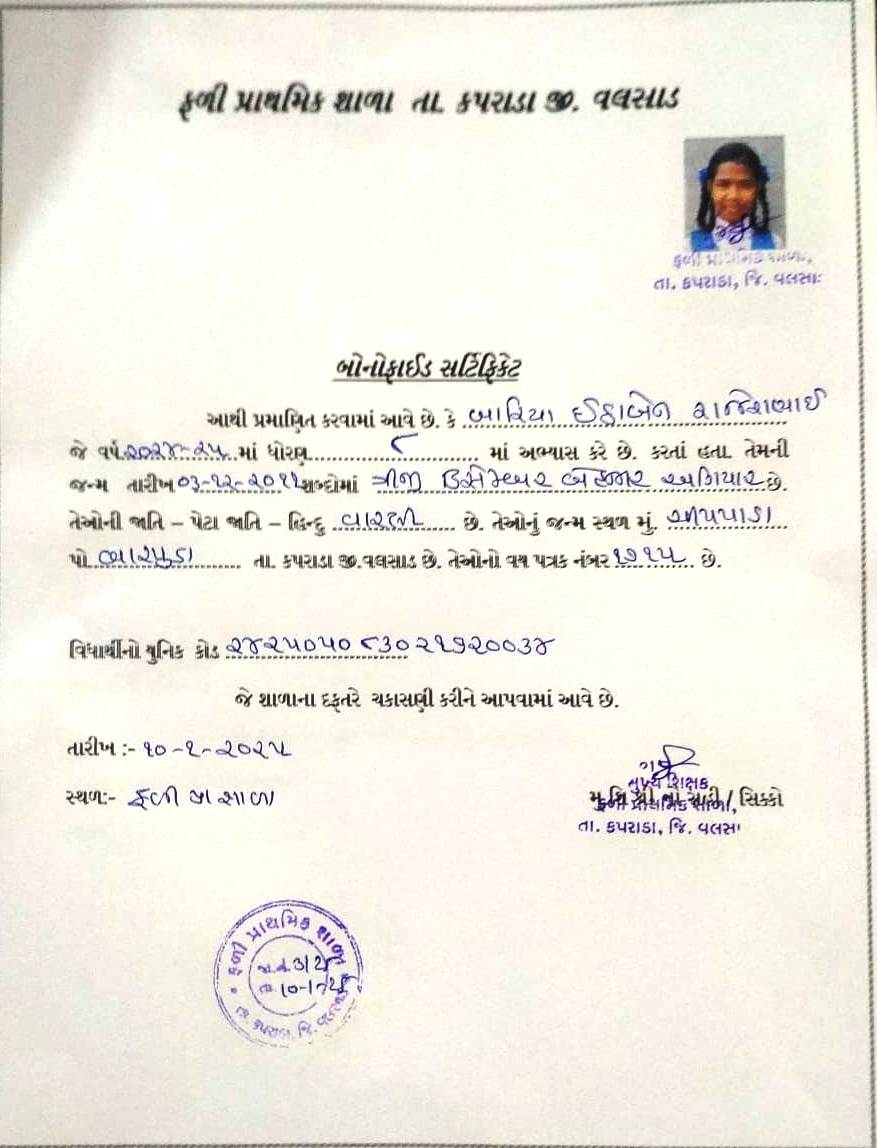 ફળી પ્રાથમિક શાળા તા. કપરાડા જી. વલસાડ
ફળી પ્રાથમિક શાળા,
તા. કપરાડા, જિ. વલસા
બોનોફાઈડ સર્ટિફિકેટ
આથી પ્રમાણિત કરવામાં આવે છે. કે બારિયા ઈકાબેન રાજેશભાઈ
જે વર્ષ ૨૦૨૪-૨૫ માં ધોરણ ૮ માં અભ્યાસ કરે છે. કરતાં હતા. તેમની
જન્મ તારીખ ૦૩-૧૨-૨૦૧૧ શબ્દોમાં ત્રીજી ડિસેમ્બર બે હજાર અગિયાર છે.
તેઓની જાતિ – પેટા જાતિ – હિન્દુ વારલી છે. તેઓનું જન્મ સ્થળ મું.
પો. તા. કપરાડા જી.વલસાડ છે. તેઓનો વય પત્રક નંબર ૧૭૧૫ છે.
વિદ્યાર્થીનો યુનિક કોડ ૨૪૨૫૦૫૦૮૩૦૨૧૭૨૦૦૩૪
જે શાળાના દફતરે ચકાસણી કરીને આપવામાં આવે છે.
તારીખ :- ૧૦-૧-૨૦૨૫
સ્થળ:- ફળી પ્રા શાળા
મુખ્ય શિક્ષક
મુ.શિ.શ્રી ના સહી / સિક્કો
ફળી પ્રાથમિક શાળા,
તા. કપરાડા, જિ. વલસા
ફળી પ્રાથમિક શાળા
જા.નં. 31
તા. 10-1-25
તા. કપરાડા, જિ. વલસાડ